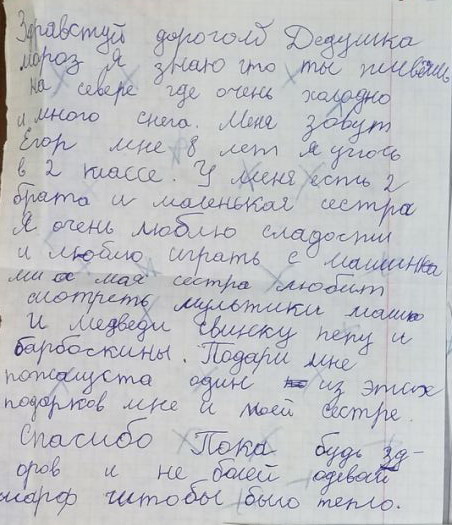 Здравствуй дорогой Дедушка
мороз я знаю что ты живёшь
на севере где очень холодно
и много снега. Меня зовут
Егор мне 8 лет я учюсь
в 2 классе. У меня есть 2
брата и маленькая сестра
Я очень люблю сладости
и люблю играть с машинка
ми а мая сестра любит
смотреть мультики маша
и медведи свинку пепу и
барбоскины. Подари мне
пожалуста один из этих
подарков мне и моей сестре.
Спасибо Пока будь зд-
оров и не болей одевай
шарф чтобы было тепло.